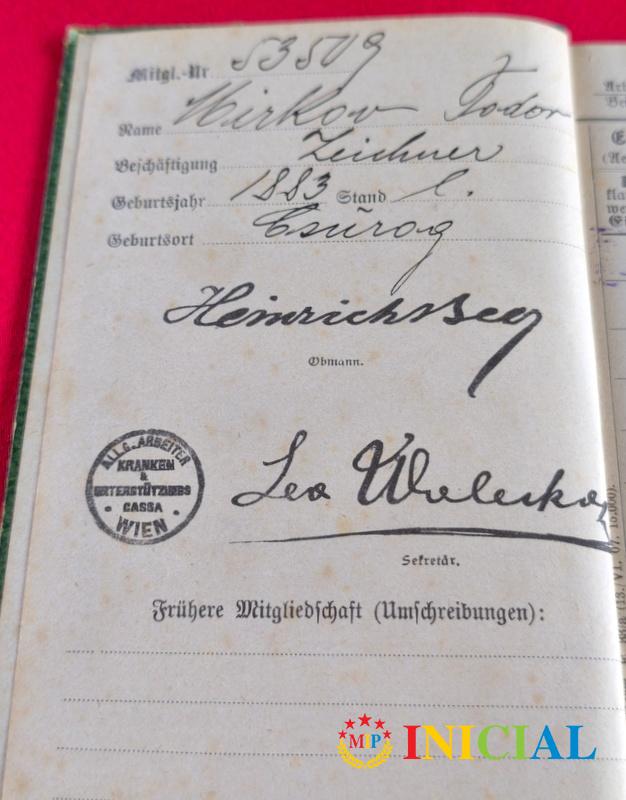 Mitgl.-Nr 53509
Name Mirkov Todor
Beschäftigung Zeichner
Geburtsjahr 1883 Stand l.
Geburtsort Csúrog
Heinrich Beer
Obmann.
ALLG. ARBEITER
KRANKEN
&
UNTERSTÜTZUNGS
CASSA
WIEN
Leo
Sekretär.
Frühere Mitgliedschaft (Umschreibungen):
MP INICIAL